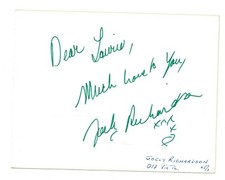 Dear Laurie,
Much love to You,
Jack Richardson
xxx
x
JOELY RICHARDSON
OLD VIC